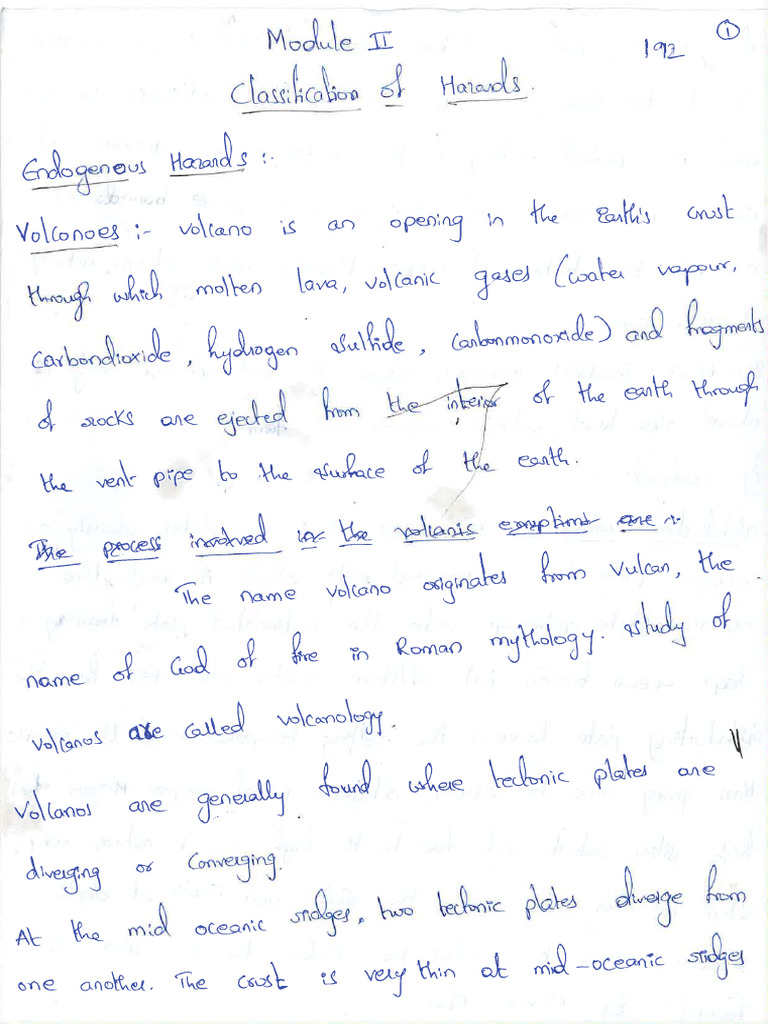 Module II
192
1
Classification of Hazards.
Endogenous Hazards :-
Volconoes :- Volcano is an opening in the Earth's crust
through which molten lava, volcanic gases (water vapour,
carbondioxide, hydrogen sulfide, carbonmonoxide) and fragments
of rocks are ejected from the interior of the earth through
the vent pipe to the surface of the earth.
The process involved in the volcanis are :-
The name volcano originates from Vulcan, the
name of God of fire in Roman mythology. Study of
volcanos are called volcanology.
Volcanos are generally found where tectonic plates are
diverging or Converging.
At the mid oceanic ridges, two tectonic plates diverge from
one another. The crust is very thin at mid-oceanic ridges